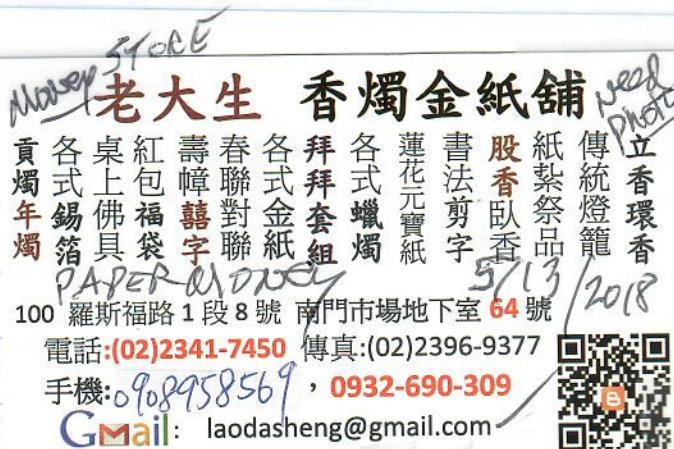 Money STORE
老大生 香燭金紙舖
need photo
立香環香
傳統燈籠
紙紮祭品
股香臥香
書法剪字
蓮花元寶紙
各式蠟燭
拜拜套組
各式金紙
春聯對聯
壽幛囍字
紅包福袋
桌上佛具
各式錫箔
貢燭年燭
PAPER MONEY 5/13/2018
100 羅斯福路1段8號 南門市場地下室 64 號
電話:(02)2341-7450 傳真:(02)2396-9377
手機:0908958569,0932-690-309
Gmail: laodasheng@gmail.com